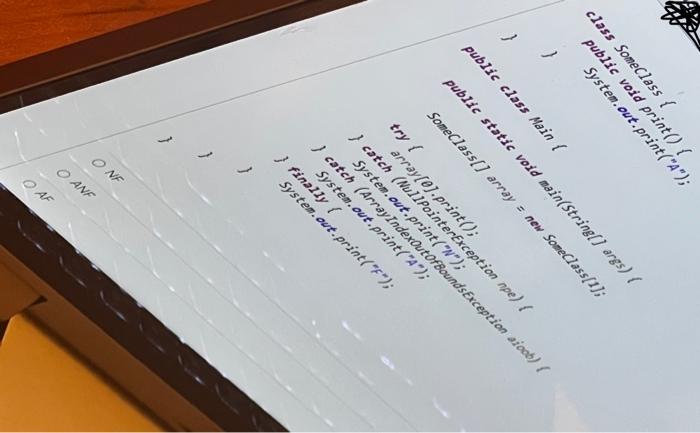 class SomeClass {
public void print() {
System.out.print("A");
}
}
public class Main {
public static void main(String[] args) {
SomeClass[] array = new SomeClass[1];
try {
array[0].print();
} catch (NullPointerException npe) {
System.out.print("N");
} catch (ArrayIndexOutOfBoundsException aioob) {
System.out.print("A");
} finally {
System.out.print("F");
}
}
}
NF
ANF
AF